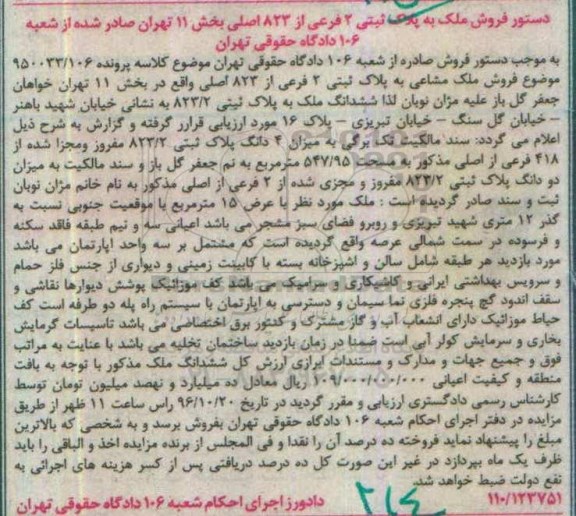 دستور فروش ملک به پلاک ثبتی ۲ فرعی از ۸۲۳ اصلی بخش ۱۱ تهران صادر شده از شعبه
۱۰۶ دادگاه حقوقی تهران
به موجب دستور فروش صادره از شعبه ۱۰۶ دادگاه حقوقی تهران موضوع کلاسه پرونده ۹۵۰۰۳۳/۱۰۶
موضوع فروش ملک مشاعی به پلاک ثبتی ۲ فرعی از ۸۲۳ اصلی واقع در بخش ۱۱ تهران خواهان
جعفر گل باز علیه مژان نوبان لذا ششدانگ ملک به پلاک ثبتی ۸۲۳/۲ به نشانی خیابان شهید باهنر
– خیابان گل سنگ – خیابان تبریزی – پلاک ۱۶ مورد ارزیابی قرار گرفته و گزارش به شرح ذیل
اعلامی می گردد: سند مالکیت تک برگی به میزان ۴ دانگ پلاک ثبتی ۸۲۳/۲ مفروز ومجزا شده از
۴۱۸ فرعی از اصلی مذکور به مساحت ۵۴۷/۹۵ مترمربع به نم جعفر گل باز و سند مالکیت به میزان
دو دانگ پلاک ثبتی ۸۲۳/۲ مفروز و مجزی شده از ۲ فرعی از اصلی مذکور به نام خانم مژان نوبان
ثبت و سند صادر گردیده است : ملک مورد نظر با عرض ۱۵ مترمربع با موقعیت جنوبی نسبت به
گذر ۱۲ متری شهید تبریزی و روبرو فضای سبز مشجر می باشد اعیانی سه و نیم طبقه فاقد سکنه
و فرسوده در سمت شمالی عرصه واقع گردیده است که مشتمل بر سه واحد اپارتمان می باشد
مورد بازدید هر طبقه شامل سالن و اشپزخانه بسته با کابینت زمینی و دیواری از جنس فلز حمام
و سرویس بهداشتی ایرانی و کاشیکاری و سرامیک می باشد کف موزائیک پوشش دیوارها نقاشی و
سقف اندود گچ پنجره فلزی نما سیمان و دسترسی به اپارتمان با سیستم راه پله دو طرفه است کف
حیاط موزائیک دارای انشعاب آب و گاز مشترک و کنتور برق اختصاصی می باشد تاسیسات گرمایش
بخاری و سرمایش کولر آبی است ضمنا در زمان بازدید ساختمان تخلیه می باشد با عنایت به مراتب
فوق و جمیع جهات و مدارک و مستندات ابرازی ارزش کل ششدانگ ملک مذکور با توجه به بافت
منطقه و کیفیت اعیانی ۱۰۹/۰۰۰/۰۰۰/۰۰۰ ریال معادل ده میلیارد و نهصد میلیون تومان توسط
کارشناس رسمی دادگستری ارزیابی و مقرر گردید در تاریخ ۹۶/۱۰/۲۰ راس ساعت ۱۱ ظهر از طریق
مزایده در دفتر اجرای احکام شعبه ۱۰۶ دادگاه حقوقی تهران بفروش برسد و به شخصی که بالاترین
مبلغ را پیشنهاد نماید فروخته ده درصد آن را نقدا و فی المجلس از برنده مزایده اخذ و الباقی را باید
ظرف یک ماه بپردازد در غیر این صورت کل ده درصد دریافتی پس از کسر هزینه های اجرائی به
نفع دولت ضبط خواهد شد.
۱۱۰/۱۲۳۷۵۱ دادورز اجرای احکام شعبه ۱۰۶ دادگاه حقوقی تهران